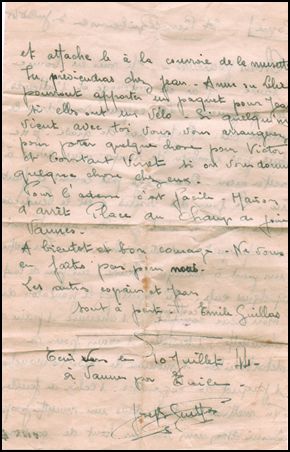 et attache le à la courroie de la musette
Tu préviendras chez Jean. Anne ou Lili
pourront apporter un paquet pour Jean
si elles ont un vélo. Si quelqu'un
vient avec toi vous vous arrangerez
pour porter quelque chose pour Victor
et Constant Viret si on vous donne
quelque chose chez eux.
Pour l'adresse c'est facile. Maison
d'arrêt Place du Champs de foire
Vannes.
A bientôt et bon courage. Ne vous
en faites pas pour nous.
Les autres copains et Jean
sont à part. Emile Guillas
le 20 Juillet 44
à Vannes par Emile
Joseph Guillas